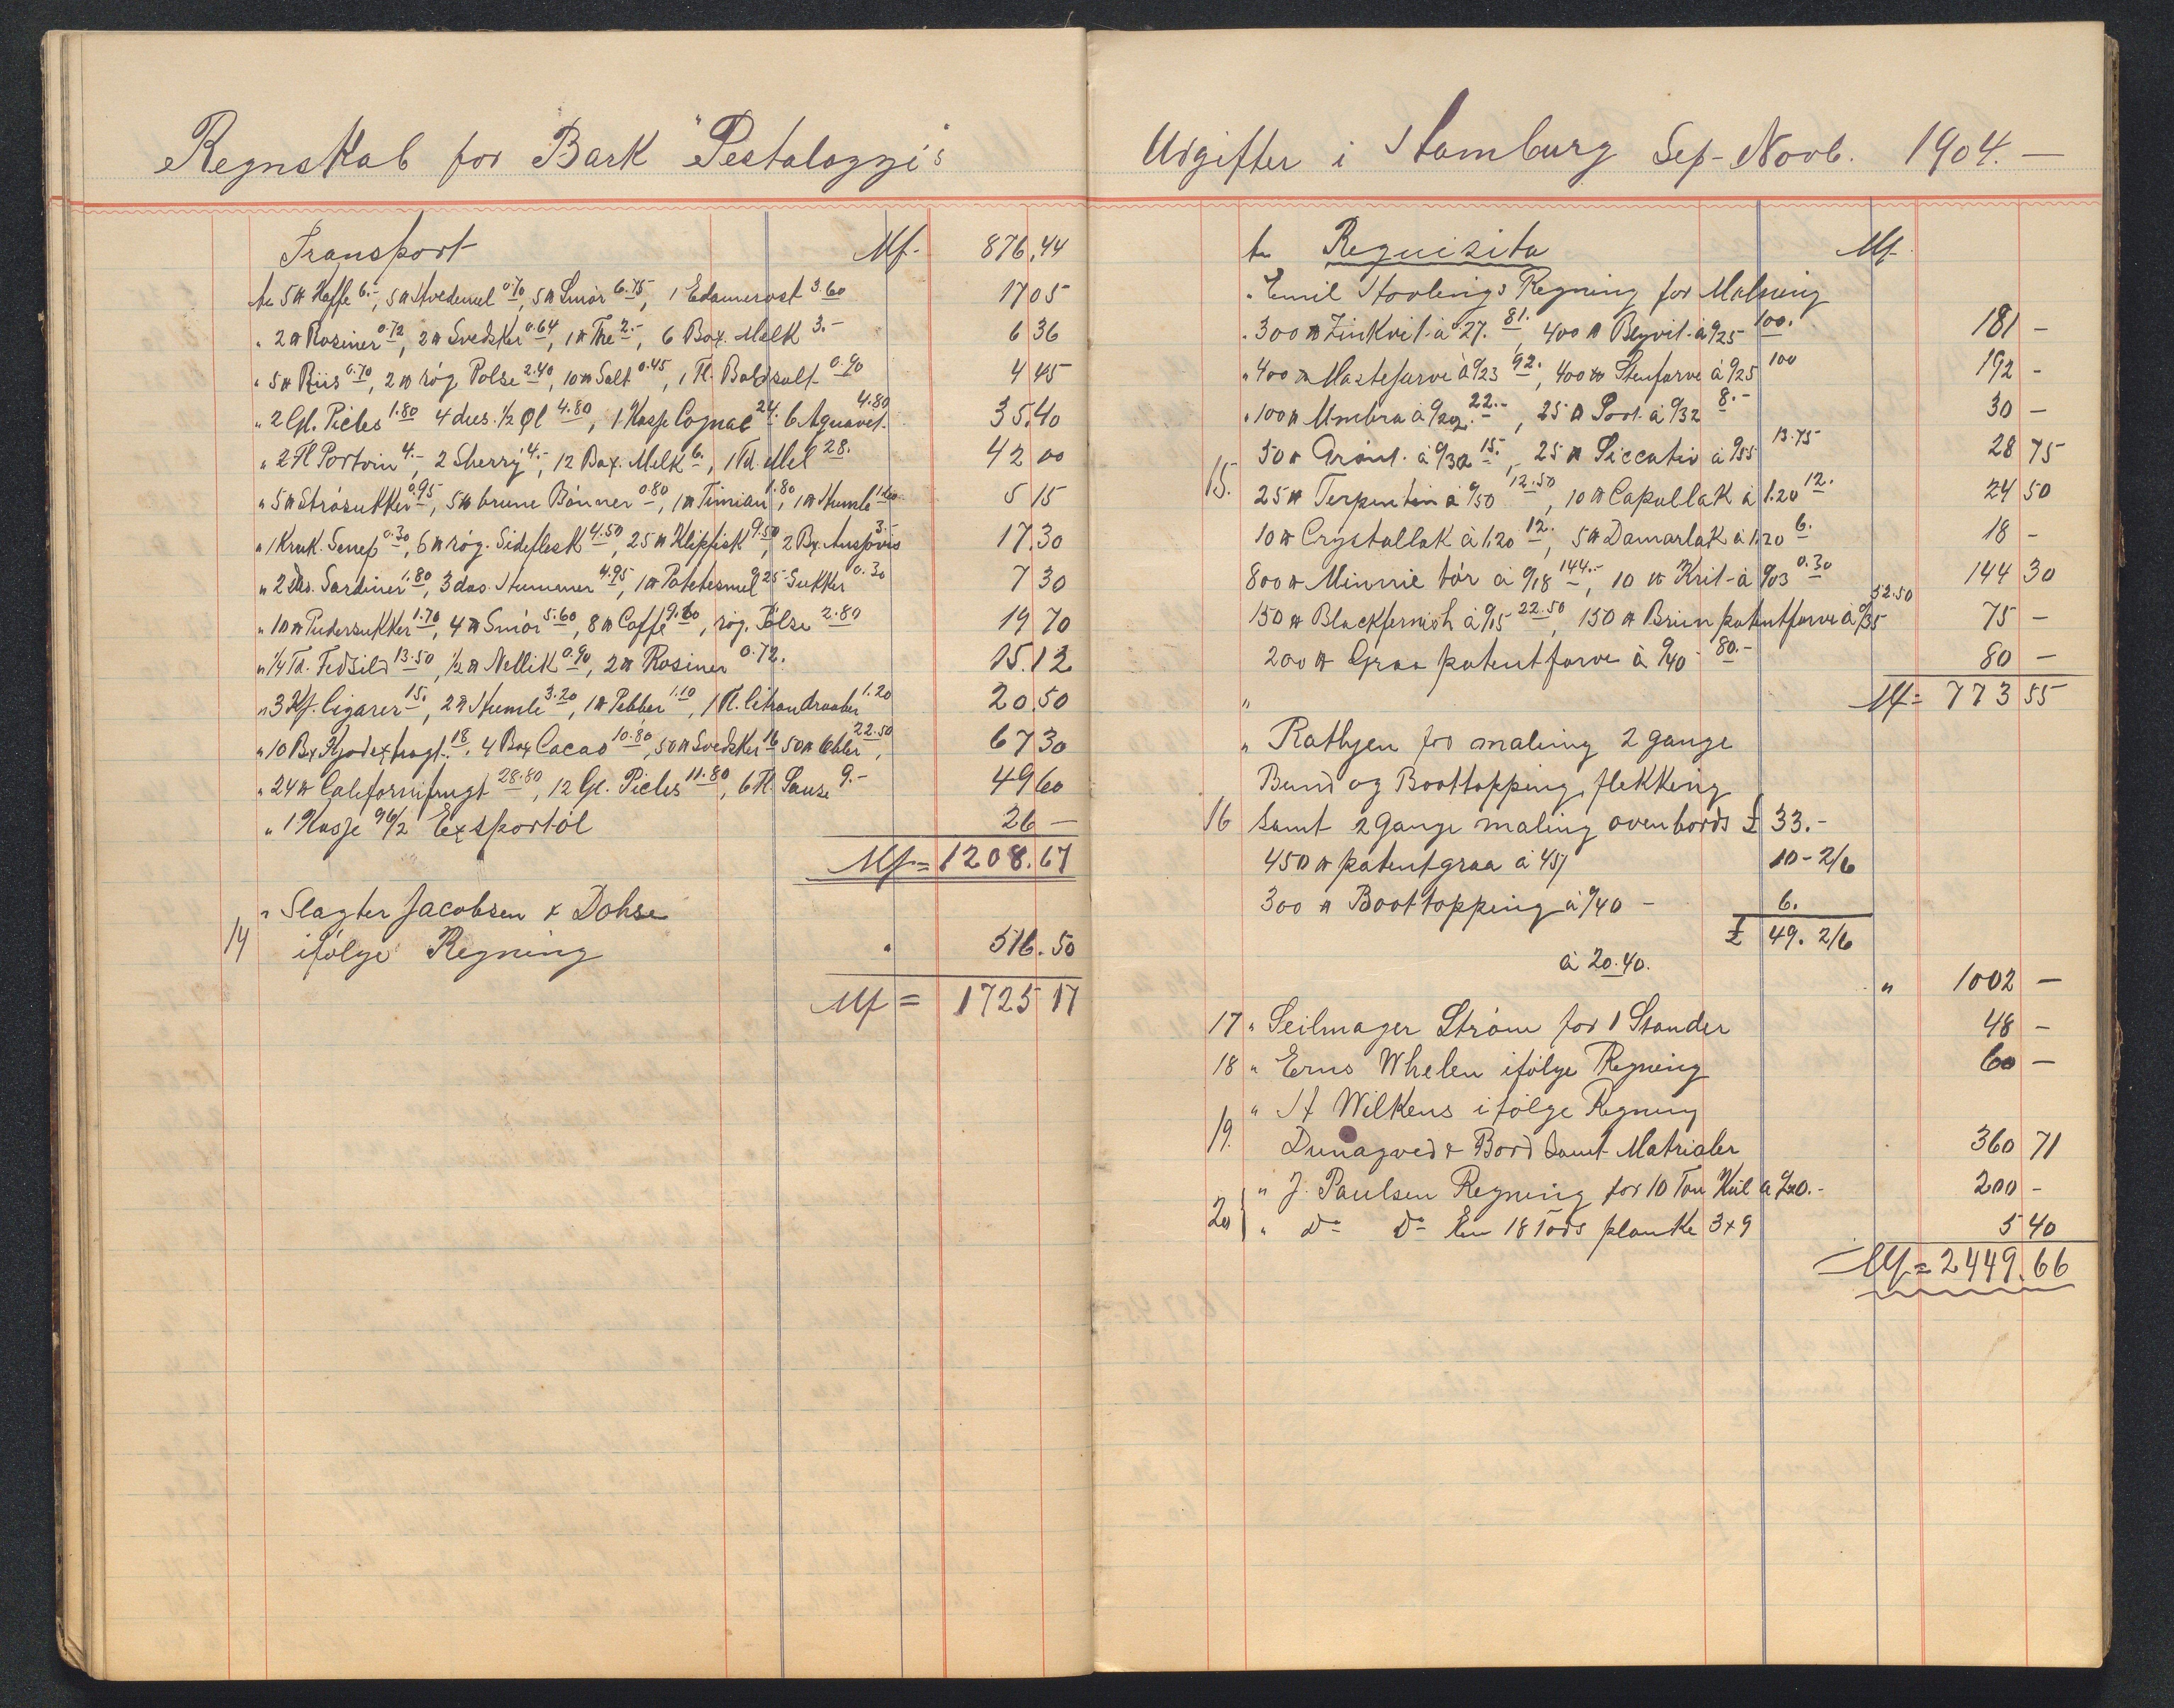 Regnskab for Bark "Pestalozzi's
Transport Mk. 876.44
An 5 ℔ Kaffe 6.-, 5 ℔ Hvedemel 0.70, 5 ℔ Smör 6.75, 1 Edamerost 3.60 17 05
" 2 ℔ Rosiner 0.72, 2 ℔ Svedsker 0.64, 1 ℔ The 2.-, 6 Box. Melk 3.- 6 36
" 5 ℔ Riis 0.70, 2 ℔ rög. Pölse 2.40, 10 ℔ Salt 0.45, 1 Fl. Bordsalt 0.90 4 45
" 2 Gl. Picles 1.80 4 dus. 1/2 Øl 4.80, 1 Kasse Cognac 24. 6 Aquavit. 4.80 35.40
" 2 Fl Portvin 4.-, 2 Sherry 4.-, 12 Box. Melk 6., 1 Td. Mel 28. 42 00
" 5 ℔ Strösukker 0.95, 5 ℔ brune Bönner 0.80, 1 ℔ Timian 1.80, 1 ℔ Humle 1.60 5 15
" 1 Kruk. Senep 0.30, 6 ℔ rög. Sideflesk 4.50, 25 ℔ Klipfisk 9.50, 2 Bx. Ansjovis 3.- 17.30
" 2 Das. Sardiner 1.80, 3 das. Hummer 4.95, 1 ℔ Potetesmel 0.25 Sukker 0.30 7 30
" 10 ℔ Pudersukker 1.70, 4 ℔ Smör 5.60, 8 ℔ Caffe 9.60, rög. Pölse 2.80 19 70
" 1/4 Td. Fedsild 13.50, 1/2 ℔ Nellik 0.90, 2 ℔ Rosiner 0.72. 15.12
" 3 Ks. Cigarer 15., 2 ℔ Humle 3.20, 1 ℔ Pebber 1.10, 1 Fl. Citrondraaber 1.20 20.50
" 10 Bx Kjödextragt. 18., 4 Box Cacao 10.80, 50 ℔ Svedsker 16 50 ℔ Ebler 22.50, 67 30
" 24 ℔ Californifrugt 28.80, 12 Gl. Picles 11.80, 6 Fl. Sause 9.- 49 60
" 1 Kasse 96/2 Exsportöl 26 -
Mk = 1208.67
" Slagter Jacobsen & Dohse
14 ifölge Regning " 516.50
Mk = 1725 17
Udgifter i Hamburg Sep-Novb. 1904.-
An Requisita Mk
" Emil Hovlings Regning for Malning
" 300 ℔ Zinkvit à 27. 81., 400 ℔ Blyvit. à 0/25 100. 181 -
" 400 ℔ Mastefarve à 0/23 92., 400 ℔ Stenfarve à 0/25 100 192 -
" 100 ℔ Umbra à 0/22. 22.-, 25 ℔ Sort. à 0/32 8.- 30 -
50 ℔ Grönt. à 0/30 15., 25 ℔ Siccativ à 0/55 13.75 28 75
15. 25 ℔ Terpentin à 0/50 12.50, 10 ℔ Capallak à 1.20 12. 24 50
10 ℔ Crystallak à 1.20 12., 5 ℔ Damarlak à 1.20 6. 18 -
800 ℔ Minnie tör à 0/18 144.-, 10 ℔ Krit à 0/03 0.30 144 30
150 ℔ Blackfernish à 0/15 22.50, 150 ℔ Brun patentfarve à 0/35 52.50 75 -
200 ℔ Graa patentfarve à 0/40 80.- 80 -
" Mk = 773 55
" Rathjen for maling 2 gange
Bund og Boottopping, flekking
16 samt 2 gange maling ovenbords £ 33.-
450 ℔ patentgraa à 45/ 10-2/6
300 ℔ Boottopping à 0/40 - 6.
£ 49. 2/6
à 20.40.
" 1002 -
17 " Seilmager Ström for 1 Stander 48 -
18 " Erns Whelen ifölge Regning 60 -
" H Wilkens ifölge Regning
19. Dunagved & Bord samt Matrialer 360 71
" J. Paulsen Regning for 10 Ton Kul a 20.- 200 -
20 " Do Do En 18 Fods planke 3x9 5 40
Mk = 2449.66